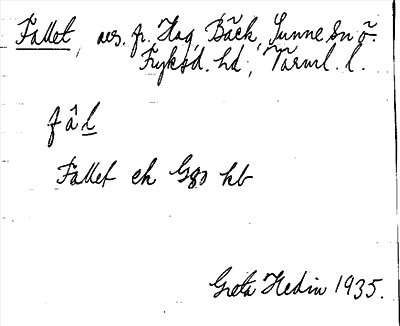 Fallet, avs. fr. Hag, Bäck, Sunne sn o.
Fryksd. hd, Värml. l.
fâl
Fallet ek G80 kb
Greta Hedin 1935.